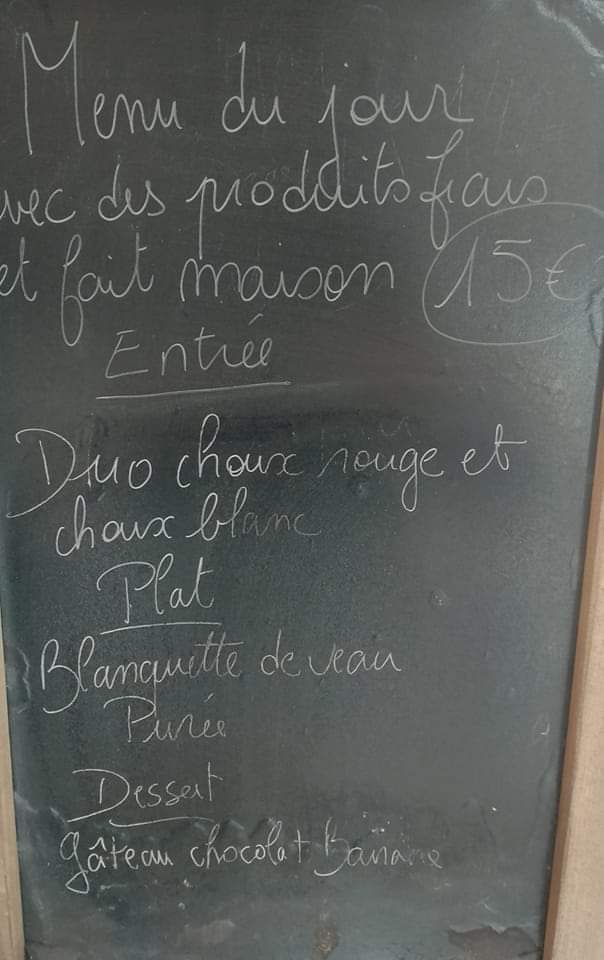 Menu du jour
avec des produits frais
et fait maison 15€
Entrée
Duo choux rouge et
choux blanc
Plat
Blanquette de veau
Purée
Dessert
gâteau chocolat Banane